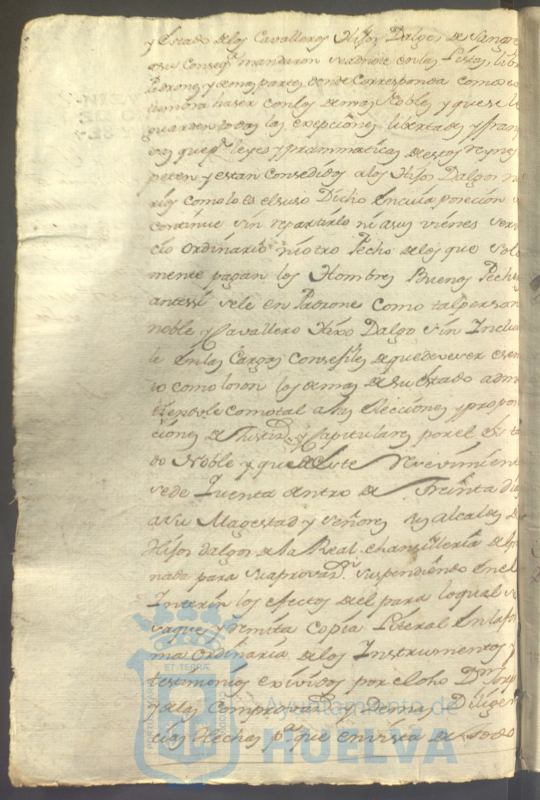 y Estado de los Cavalleros Hijos Dalgos de Sangre
a su Conseq.ª mandaron se adnote en las Listas, libr
Padrones y demas partes donde Corresponda como es
tumbra haser con los demas Nobles y que se l
guarden todas las excepciones livertades y fran
zas que p.r leyes y Prammaticas de estos Reynos
peten y estan Consedidos a los Hijos Dalgos no
rios como lo es el suso Dicho en cuia posecion
continue sin repartirle ni a sus vienes serv
cio ordinario ni otro Pecho de los que solo
mente pagan los Hombres Buenos Peche
antes si se le en Padrone como tal person
noble y Cavallero Hijo Dalgo sin Inclui
le en las Cargas Consejiles de que deve ser esen
to como lo son los demas de su Estado admi
tiendole como tal a las Elecciones y propo
ciones de Justicia y Capitulares por el Esta
do Noble y que de este Resevimient
se de Quenta dentro de Treinta dia
a Su Magestad y Señores Alcaldes de
Hijos dalgos de la Real Chansilleria de Gra
nada para su aprovaz.n suspendiendo en el
Interin los efectos del para lo qual se
saque y remita Copia Literal en la for
ma Ordinaria de los Instrumentos y
testimonios exividos por el dho D.n
y de las Comprovaz.s y demas Diligen
cias Hechas p.ª que en vista de todo
Ayuntamiento de
HUELVA